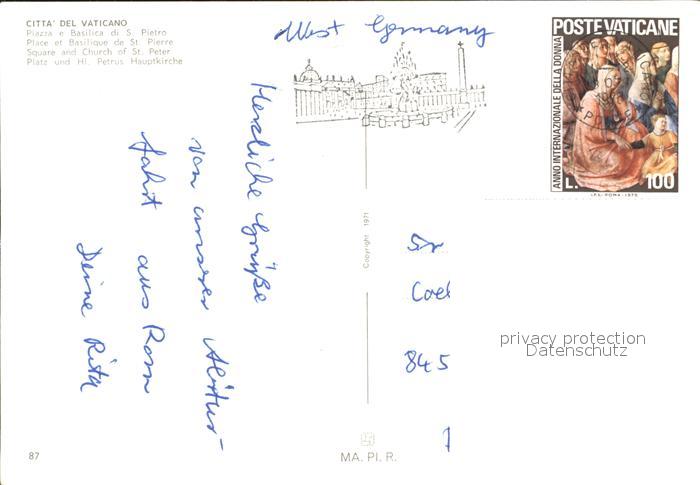 CITTA' DEL VATICANO
Piazza e Basilica di S. Pietro
Place et Basilique de St. Pierre
Square and Church of St. Peter
Platz und Hl. Petrus Hauptkirche
West Germany
POSTE VATICANE
ANNO INTERNAZIONALE DELLA DONNA
L. 100
I.P.S.-ROMA-1975
Herzliche Grüße
von unserer Abitur-
fahrt aus Rom
Deine Rita
Copyright 1971
845
privacy protection
Datenschutz
87
MA. PI. R.